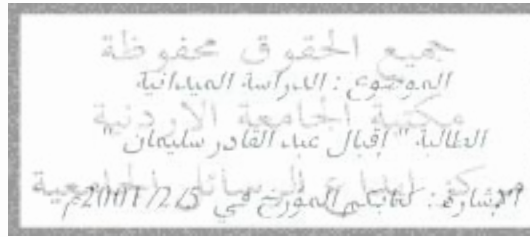 جميع الحقوق محفوظة
الموضوع : الدراسة الميدانية
مكتبة الجامعة الاردنية
الطالبة " إقبال عبد القادر سليمان "
مركز ايداع الرسائل الجامعية
الإشارة : كتابكم المؤرخ في 2001/2/5م